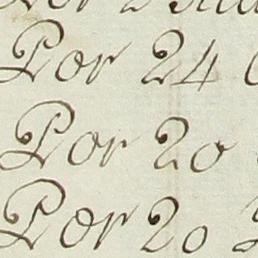 Por 24
Por 20
Por 20